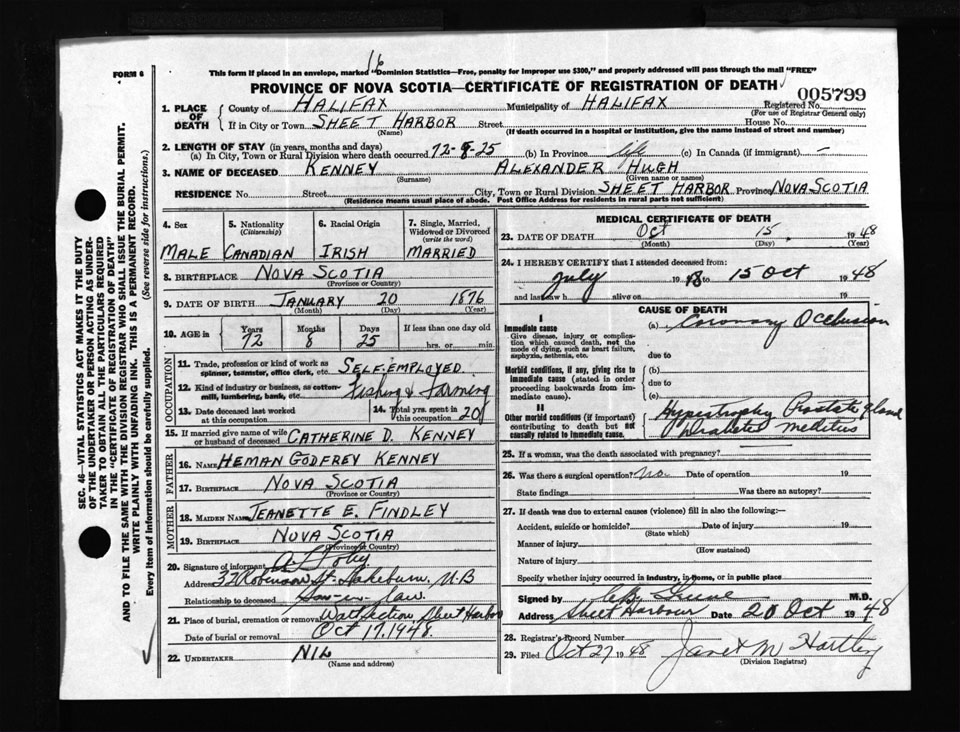 16
FORM 6
This form if placed in an envelope, marked "Dominion Statistics—Free, penalty for improper use $300," and properly addressed will pass through the mail "FREE"
PROVINCE OF NOVA SCOTIA—CERTIFICATE OF REGISTRATION OF DEATH
005799
1. PLACE OF DEATH
County of HALIFAX Municipality of HALIFAX Registered No.
(For use of Registrar General only)
If in City or Town SHEET HARBOR Street House No.
(Name) (If death occurred in a hospital or institution, give the name instead of street and number)
2. LENGTH OF STAY (in years, months and days)
(a) In City, Town or Rural Division where death occurred 72-8-25 (b) In Province life (c) In Canada (if immigrant) —
3. NAME OF DECEASED KENNEY ALEXANDER HUGH
(Surname) (Given name or names)
RESIDENCE No. Street City, Town or Rural Division SHEET HARBOR Province NOVA SCOTIA
(Residence means usual place of abode. Post Office Address for residents in rural parts not sufficient)
4. Sex 5. Nationality (Citizenship) 6. Racial Origin 7. Single, Married, Widowed or Divorced (write the word)
MALE CANADIAN IRISH MARRIED
8. BIRTHPLACE NOVA SCOTIA
(Province or Country)
9. DATE OF BIRTH JANUARY 20 1876
(Month) (Day) (Year)
10. AGE in Years Months Days If less than one day old
72 8 25 hrs. or min.
OCCUPATION
11. Trade, profession or kind of work as spinner, teamster, office clerk, etc. SELF-EMPLOYED
12. Kind of industry or business, as cotton-mill, lumbering, bank, etc. Fishing & Farming
13. Date deceased last worked at this occupation 14. Total yrs. spent in this occupation 20
15. If married give name of wife or husband of deceased CATHERINE D. KENNEY
FATHER
16. NAME HEMAN GODFREY KENNEY
17. BIRTHPLACE NOVA SCOTIA
(Province or Country)
MOTHER
18. MAIDEN NAME JEANETTE E. FINDLEY
19. BIRTHPLACE NOVA SCOTIA
(Province or Country)
20. Signature of informant
Address 32 Robinson St. Lakeburn, N.B
Relationship to deceased Son-in-law.
21. Place of burial, cremation or removal Watt Section, Sheet Harbor
Date of burial or removal Oct 17, 1948.
22. UNDERTAKER NIL
(Name and address)
MEDICAL CERTIFICATE OF DEATH
23. DATE OF DEATH Oct 15 1948
(Month) (Day) (Year)
24. I HEREBY CERTIFY that I attended deceased from:
July 1948 15 Oct 1948
and last saw h alive on 19
CAUSE OF DEATH
I
Immediate cause (a) Coronary Occlusion
Give disease, injury or complication which caused death, not the mode of dying, such as heart failure, asphyxia, asthenia, etc.
due to
Morbid conditions, if any, giving rise to immediate cause (stated in order proceeding backwards from immediate cause).
(b)
due to
(c)
II
Other morbid conditions (if important) contributing to death but not causally related to immediate cause.
Hypertrophy Prostate gland
Diabetes Mellitus
25. If a woman, was the death associated with pregnancy?
26. Was there a surgical operation? no. Date of operation 19
State findings Was there an autopsy?
27. If death was due to external causes (violence) fill in also the following:—
Accident, suicide or homicide? Date of injury 19
(State which)
Manner of injury
(How sustained)
Nature of injury
Specify whether injury occurred in industry, in home, or in public place
Signed by M.D.
Address Sheet Harbour Date 20 Oct 1948
28. Registrar's Record Number
29. Filed Oct 27 1948 Janet M Hartling
(Division Registrar)
SEC. 46—VITAL STATISTICS ACT MAKES IT THE DUTY
OF THE UNDERTAKER OR PERSON ACTING AS UNDER-
TAKER TO OBTAIN ALL THE PARTICULARS REQUIRED
IN THE "CERTIFICATE OF REGISTRATION OF DEATH"
AND TO FILE THE SAME WITH THE DIVISION REGISTRAR WHO SHALL ISSUE THE BURIAL PERMIT.
WRITE PLAINLY WITH UNFADING INK. THIS IS A PERMANENT RECORD.
Every item of information should be carefully supplied. (See reverse side for instructions.)